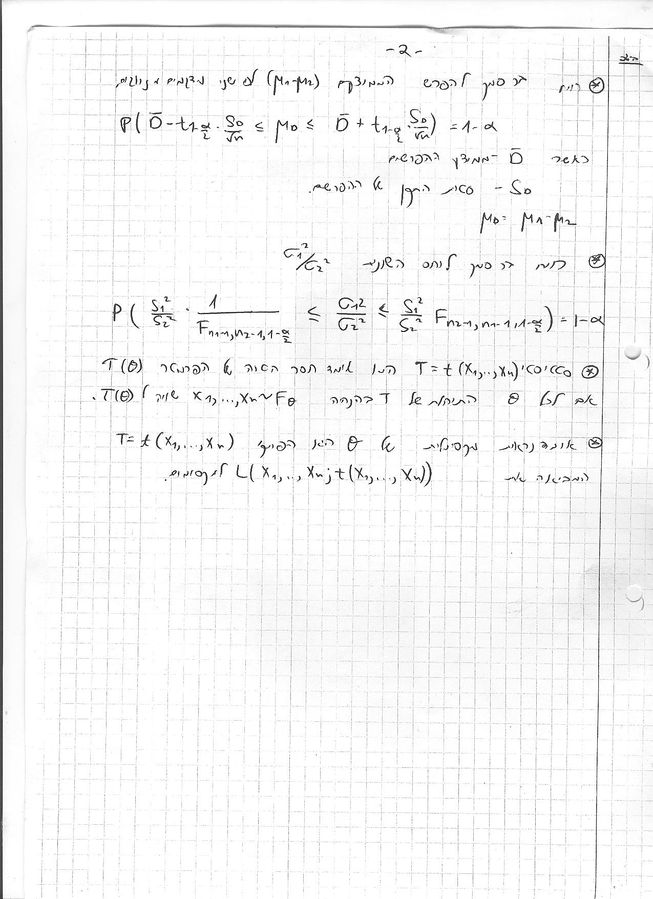 -2-
רווח בר סמך להפרש הממוצעים (μ1-μ2) לפי שני מדגמים מזווגים.
P( D̄ - t1-α/2 · SD/√n ≤ μD ≤ D̄ + t1-α/2 · SD/√n ) = 1-α
כאשר D̄ - ממוצע ההפרשים
SD - סטית התקן של ההפרשים.
μD = μ1-μ2
רווח בר סמך ליחס השונויות σ1²/σ2²
P( S1²/S2² · 1/Fn1-1,n2-1,1-α/2 ≤ σ1²/σ2² ≤ S1²/S2² Fn2-1,n1-1,1-α/2 ) = 1-α
סטטיסטי T = t(X1,...,Xn) הינו אומד חסר הטיה של הפרמטר T(θ)
אם לכל θ התוחלת של T בהנחה X1,...,Xn~Fθ שווה ל T(θ).
אומד נראות מקסימלית של θ הוא הפונק' T = t(X1,...,Xn)
המביאה את L(X1,...,Xn; t(X1,...,Xn)) למקסימום.